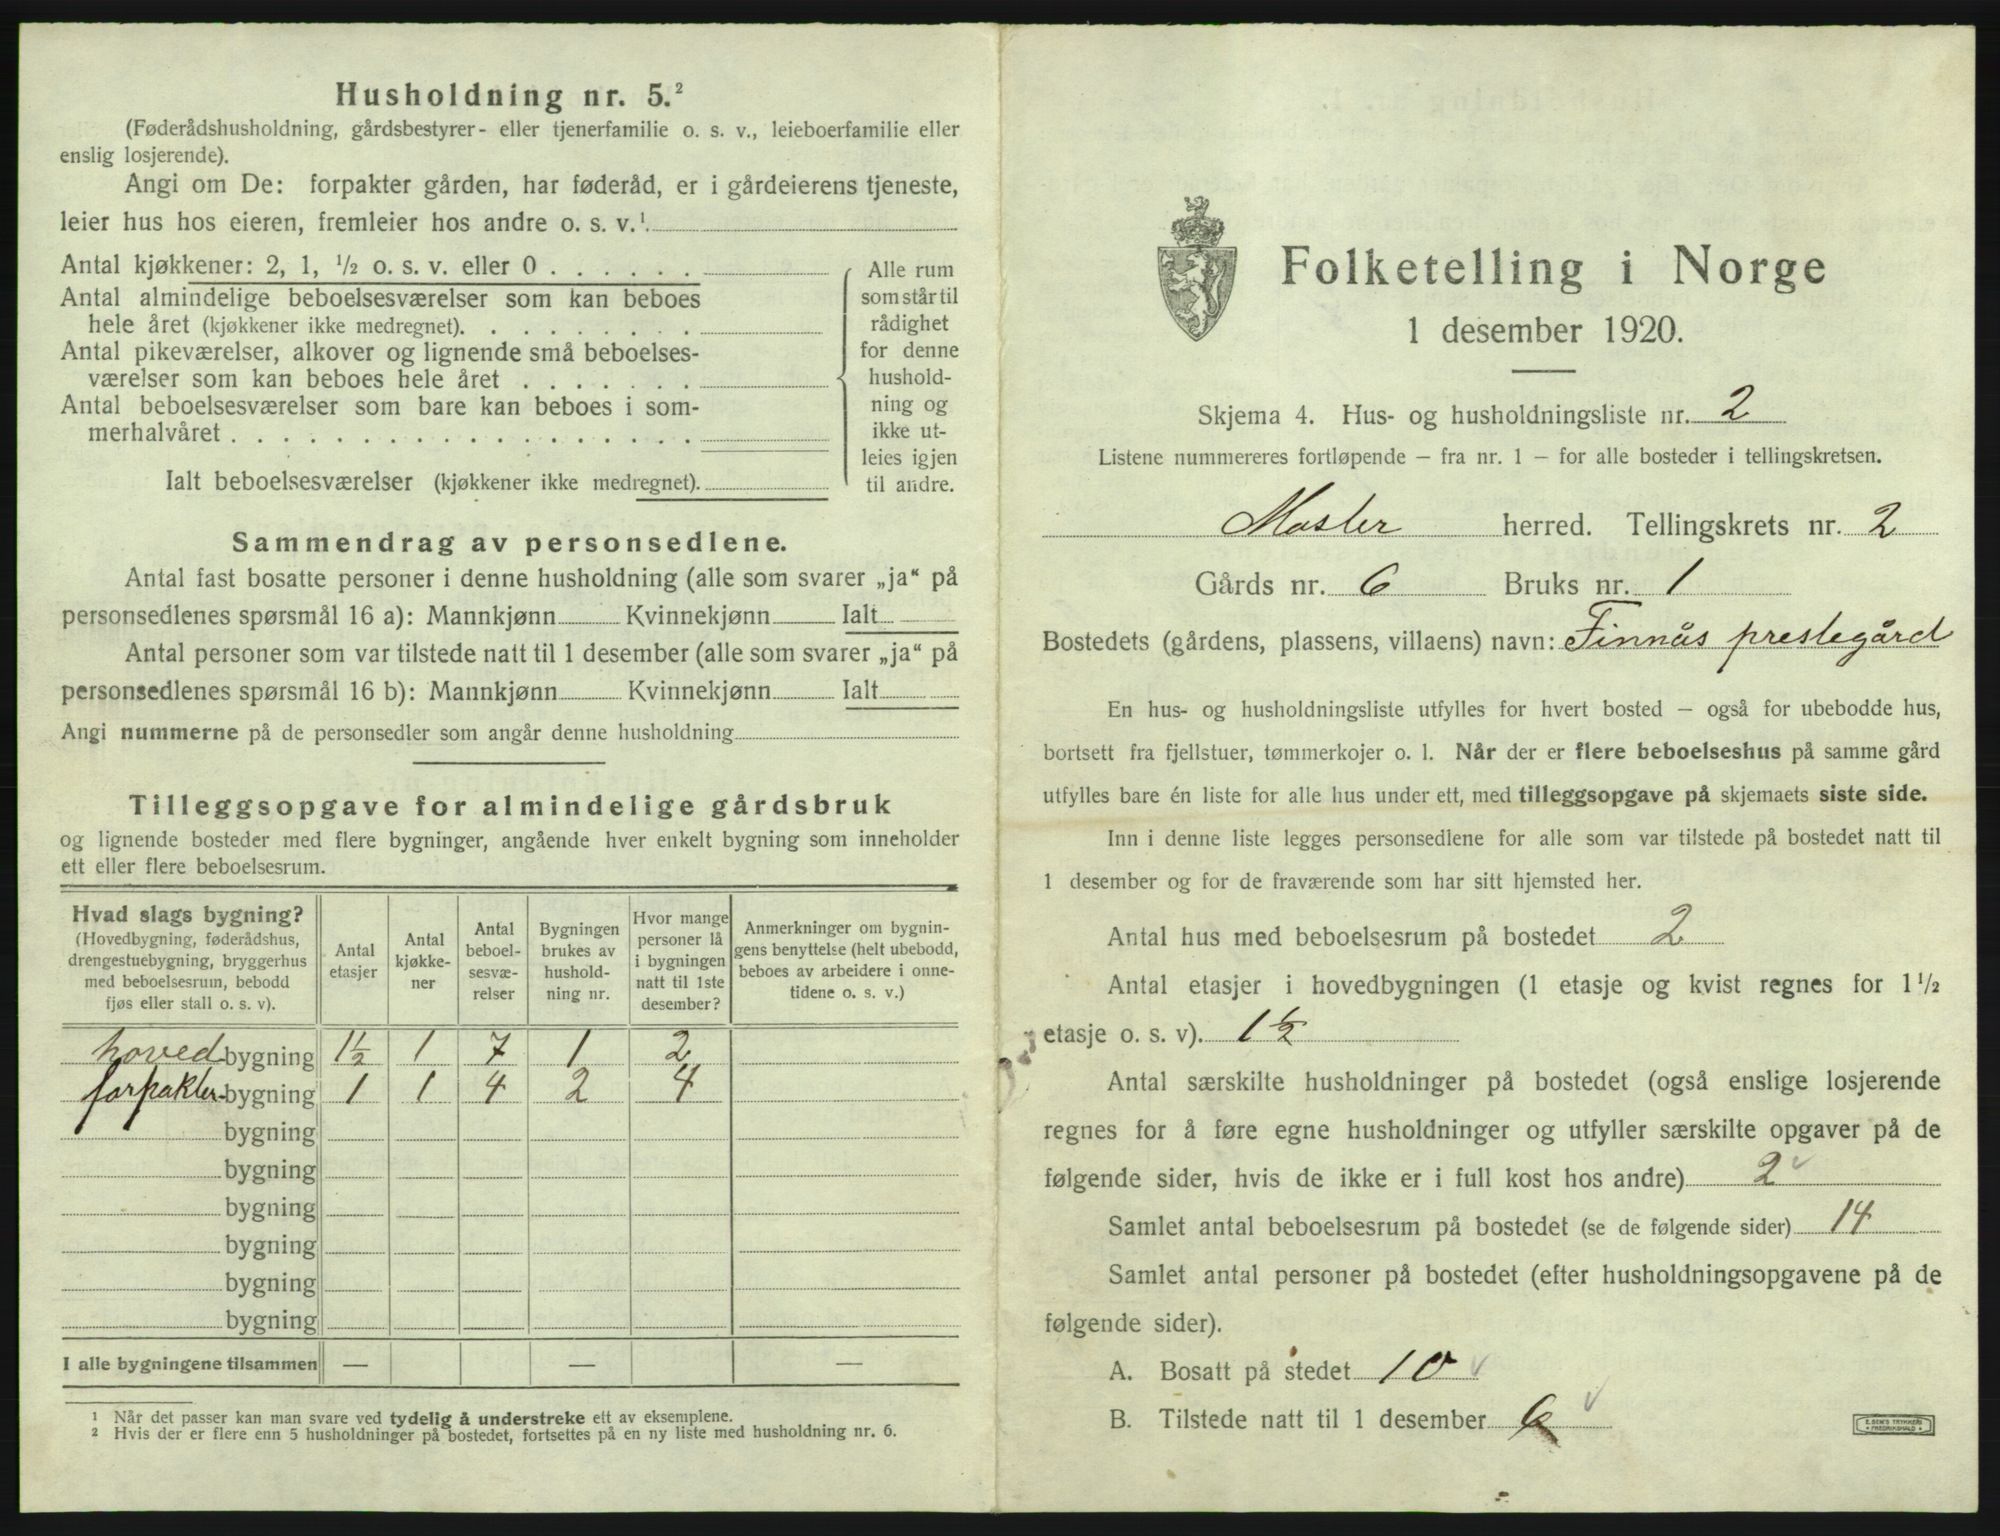 Husholdning nr. 5.²
(Føderådshusholdning, gårdsbestyrer- eller tjenerfamilie o. s. v., leieboerfamilie eller
enslig losjerende).
Angi om De: forpakter gården, har føderåd, er i gårdeierens tjeneste,
leier hus hos eieren, fremleier hos andre o. s. v.¹
Antal kjøkkener: 2, 1, ½ o. s. v. eller 0 . . . . . .
Antal almindelige beboelsesværelser som kan beboes
hele året (kjøkkener ikke medregnet). . . . . . . . .
Antal pikeværelser, alkover og lignende små beboelses-
værelser som kan beboes hele året . . . . . . .
Antal beboelsesværelser som bare kan beboes i som-
merhalvåret . . . . . . . . . . . . . . . . . .
Ialt beboelsesværelser (kjøkkener ikke medregnet).
Alle rum
som står til
rådighet
for denne
hushold-
ning og
ikke ut-
leies igjen
til andre.
Sammendrag av personsedlene.
Antal fast bosatte personer i denne husholdning (alle som svarer „ja“ på
personsedlenes spørsmål 16 a): Mannkjønn Kvinnekjønn Ialt
Antal personer som var tilstede natt til 1 desember (alle som svarer „ja“ på
personsedlenes spørsmål 16 b): Mannkjønn Kvinnekjønn Ialt
Angi nummerne på de personsedler som angår denne husholdning
Tilleggsopgave for almindelige gårdsbruk
og lignende bosteder med flere bygninger, angående hver enkelt bygning som inneholder
ett eller flere beboelsesrum.
Hvad slags bygning?
(Hovedbygning, føderådshus,
drengestuebygning, bryggerhus
med beboelsesrum, bebodd
fjøs eller stall o. s. v).
Antal
etasjer
Antal
kjøkke-
ner
Antal
beboel-
sesvæ-
relser
Bygningen
brukes av
hushold-
ning nr.
Hvor mange
personer lå
i bygningen
natt til 1ste
desember?
Anmerkninger om bygnin-
gens benyttelse (helt ubebodd,
beboes av arbeidere i onne-
tidene o. s. v.)
hoved bygning 1½ 1 7 1 2
forpakter- bygning 1 1 4 2 4
bygning
bygning
bygning
bygning
bygning
bygning
I alle bygningene tilsammen — — —
¹ Når det passer kan man svare ved tydelig å understreke ett av eksemplene.
² Hvis der er flere enn 5 husholdninger på bostedet, fortsettes på en ny liste med husholdning nr. 6.
Folketelling i Norge
1 desember 1920.
Skjema 4. Hus- og husholdningsliste nr. 2
Listene nummereres fortløpende — fra nr. 1 — for alle bosteder i tellingskretsen.
Moster herred. Tellingskrets nr. 2
Gårds nr. 6 Bruks nr. 1
Bostedets (gårdens, plassens, villaens) navn: Finnås prestegård
En hus- og husholdningsliste utfylles for hvert bosted — også for ubebodde hus,
bortsett fra fjellstuer, tømmerkojer o. l. Når der er flere beboelseshus på samme gård
utfylles bare én liste for alle hus under ett, med tilleggsopgave på skjemaets siste side.
Inn i denne liste legges personsedlene for alle som var tilstede på bostedet natt til
1 desember og for de fraværende som har sitt hjemsted her.
Antal hus med beboelsesrum på bostedet 2
Antal etasjer i hovedbygningen (1 etasje og kvist regnes for 1½
etasje o. s. v). 1½
Antal særskilte husholdninger på bostedet (også enslige losjerende
regnes for å føre egne husholdninger og utfyller særskilte opgaver på de
følgende sider, hvis de ikke er i full kost hos andre) 2
Samlet antal beboelsesrum på bostedet (se de følgende sider) 14
Samlet antal personer på bostedet (efter husholdningsopgavene på de
følgende sider).
A. Bosatt på stedet 10
B. Tilstede natt til 1 desember 6